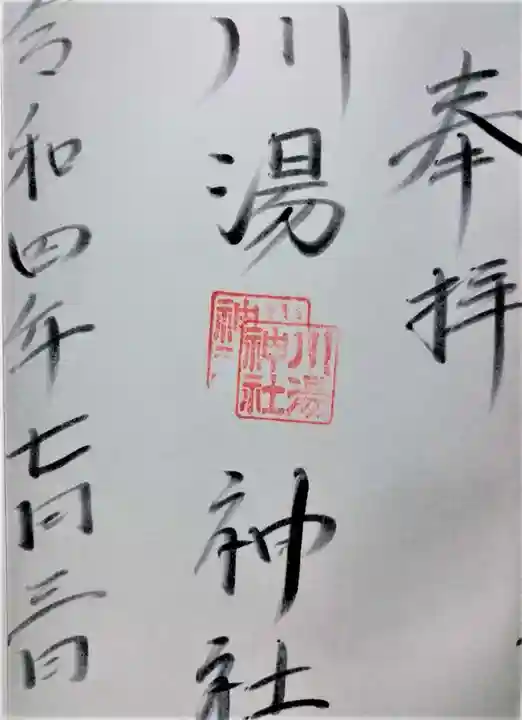 奉拝
川湯神社
川湯
神社
令和四年七月三日